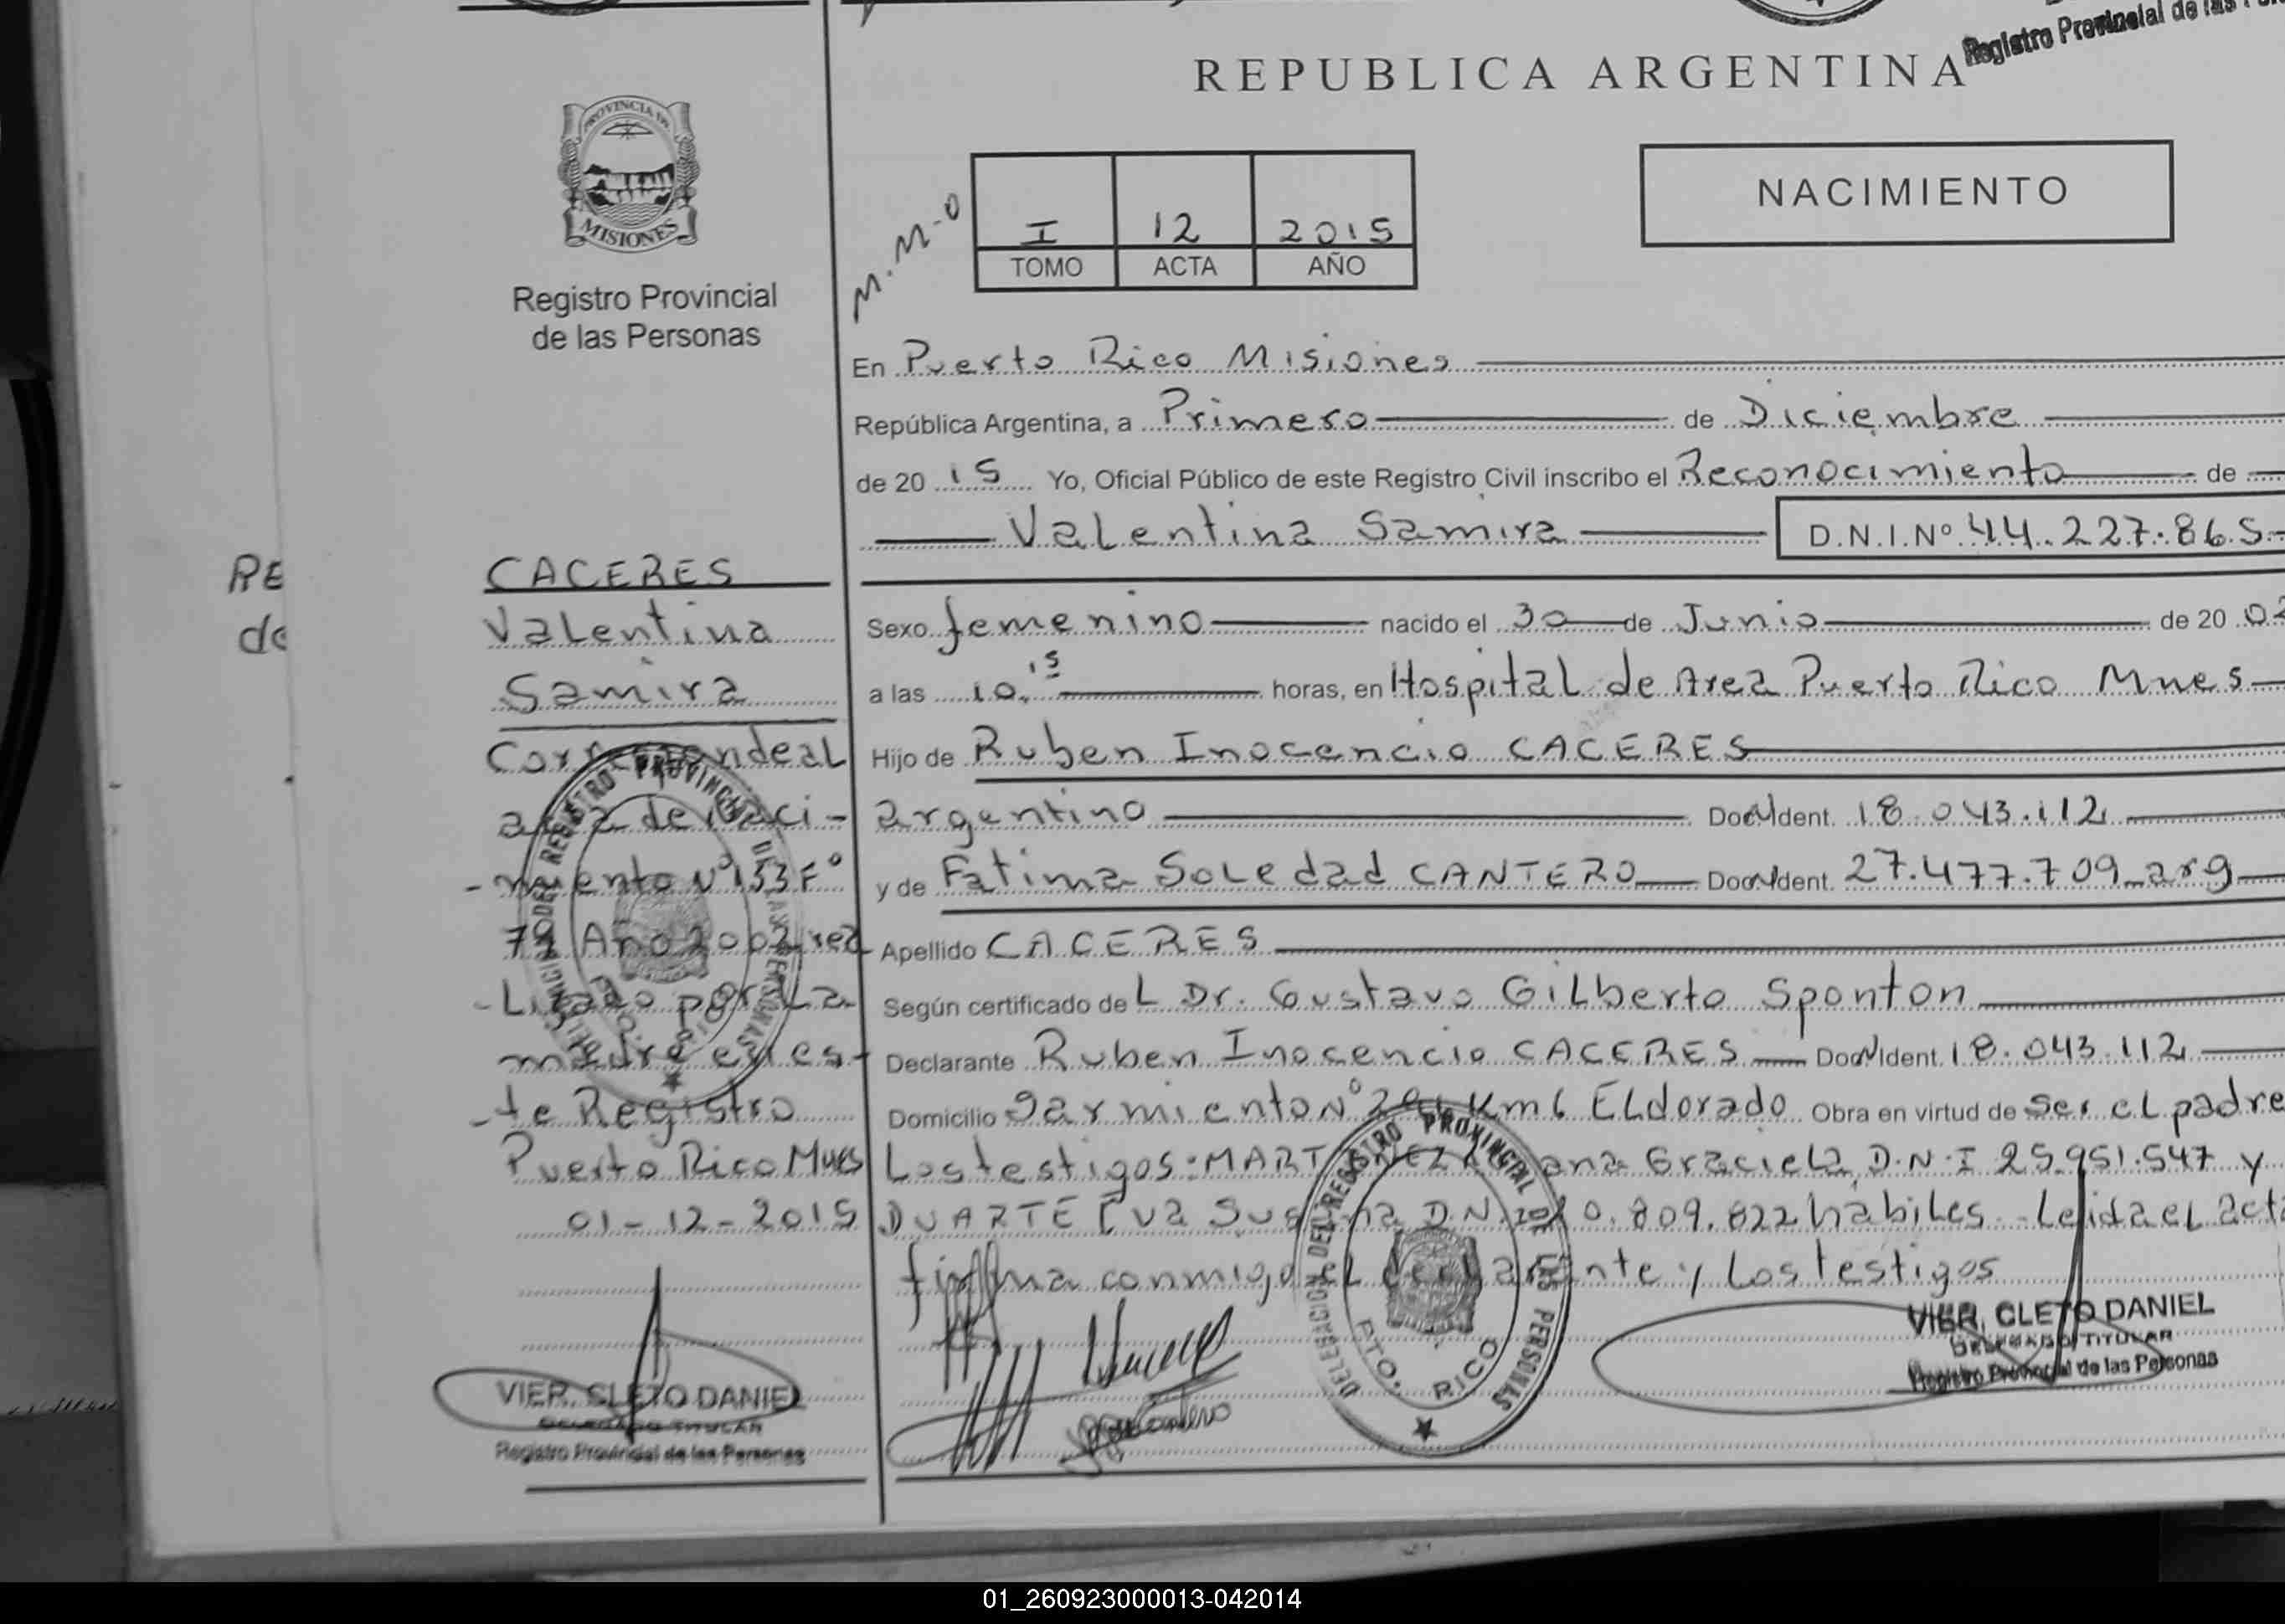 Registro Provincial de las
REPUBLICA ARGENTINA
PROVINCIA DE
MISIONES
Registro Provincial
de las Personas
NACIMIENTO
M.M-O
I 12 2015
TOMO ACTA AÑO
En Puerto Rico Misiones
República Argentina, a Primero de Diciembre
de 20 15 Yo, Oficial Público de este Registro Civil inscribo el Reconocimiento de
Valentina Samira D.N.I.Nº 44.227.865-
Sexo femenino nacido el 30 de Junio de 20 02
a las 10.15 horas, en Hospital de Area Puerto Rico Mnes
Hijo de Ruben Inocencio CACERES
argentino Doc. Ident. 18.043.112
y de Fatima Soledad CANTERO Doc. Ident. 27.477.709 arg
Apellido CACERES
Según certificado de L Dr. Gustavo Gilberto Sponton
Declarante Ruben Inocencio CACERES Doc. Ident. 18.043.112
Domicilio Sarmiento Nº Km 6 ELdorado Obra en virtud de ser el padre
Los testigos: Graciela, D.N.I 25.951.547 y
DUARTE Eva D.N.I 809.822 habiles Leida el acta
firma conmigo el declarante y Los testigos
VIER, CLETO DANIEL
DELEGADO TITULAR
Registro Provincial de las Personas
RE
de
CACERES
Valentina
Samira
Corresponde al
acta de Naci-
-miento Nº 153 Fº
79 Año 2002 rea
-Lizado por La
madre en es-
-te Registro
Puerto Rico Mnes
01-12-2015
VIER. CLETO DANIEL
DELEGADO TITULAR
Registro Provincial de las Personas
DELEGACION DEL REGISTRO PROVINCIAL DE LAS PERSONAS
PTO. RICO
01_260923000013-042014